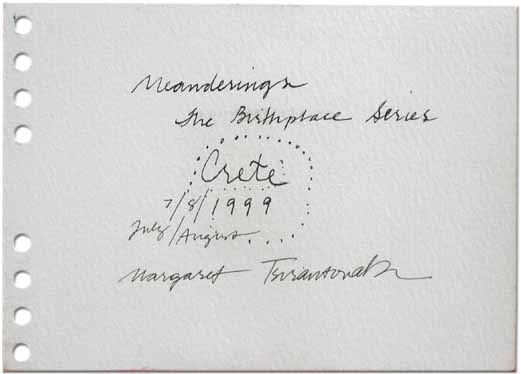 Meanderings
The Birthplace Series
Crete
7/8/1999
July/August
Margaret